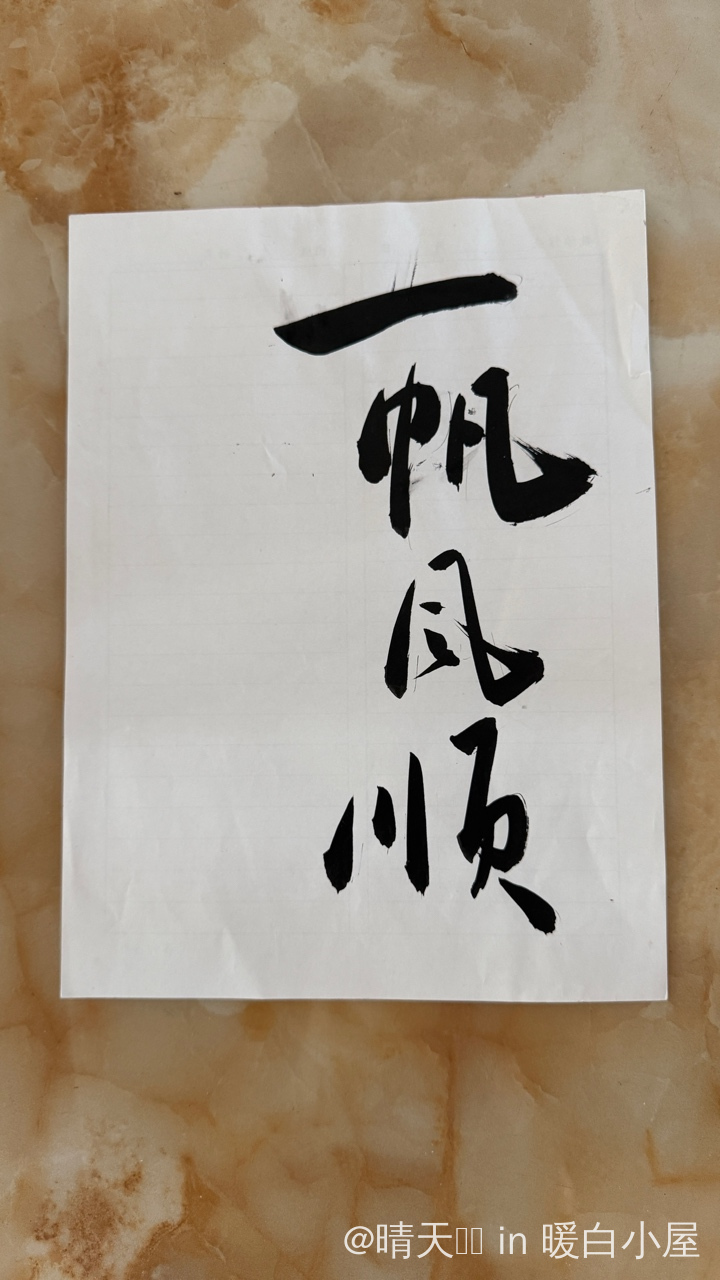 一帆风顺
@晴天 in 暖白小屋